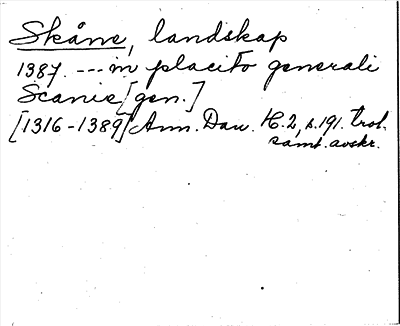 Skåne, landskap
1387. --- in placito generali
Scanie [gen.]
[1316-1389] Ann. Dan. H. 2, s. 191. Trol.
samt. avskr.